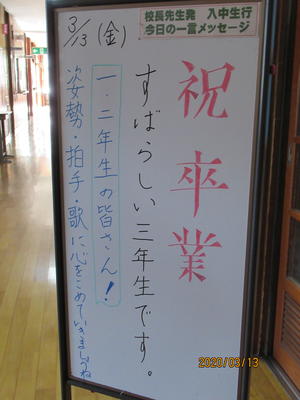 校長先生発　入中生行
今日の一言メッセージ
祝卒業
すばらしい三年生です。
一・二年生の皆さん!
姿勢・拍手・歌に心をこめていきましょうね
3/13(金)
2020/03/13